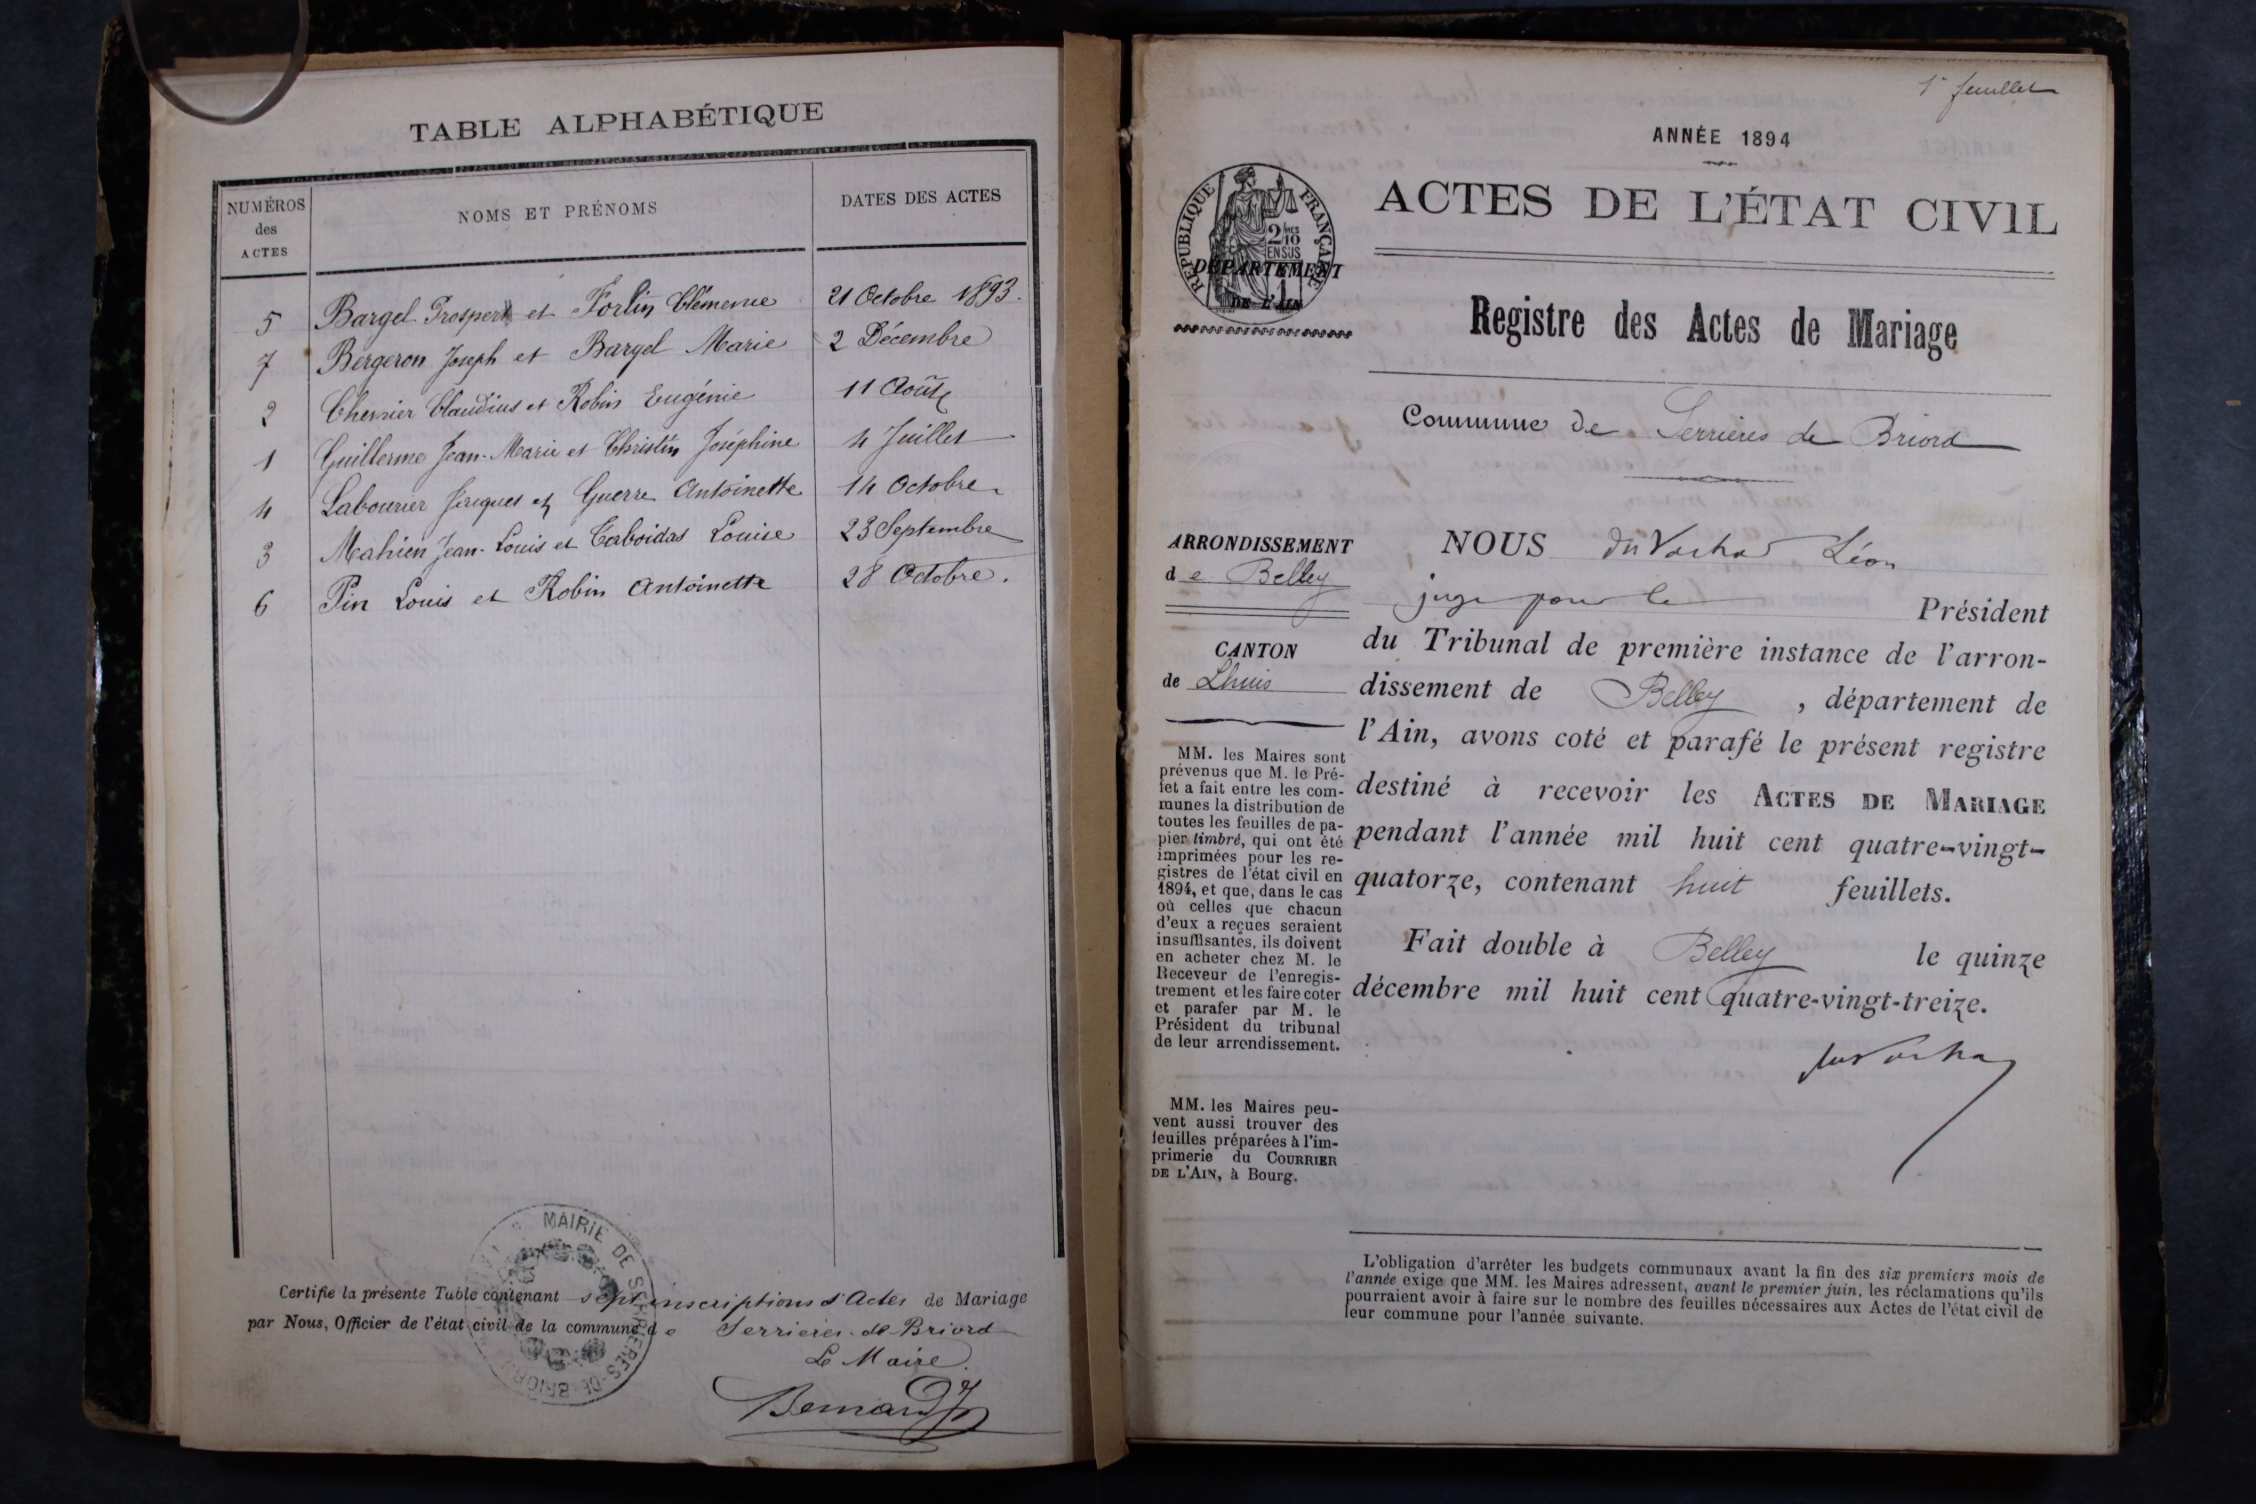 TABLE ALPHABÉTIQUE
NUMÉROS des ACTES
NOMS ET PRÉNOMS
DATES DES ACTES
5 Bargel Prosper et Fortin Clémence 21 Octobre 1893.
7 Bergeron Joseph et Bargel Marie 2 Décembre
2 Chenier Claudius et Robin Eugénie 11 Août
1 Guillerme Jean-Marie et Christin Joséphine 4 Juillet
4 Labourier Jacques et Guerre Antoinette 14 Octobre
3 Mahien Jean-Louis et Caboidas Louise 23 Septembre
6 Pin Louis et Robin Antoinette 28 Octobre.
Certifie la présente Table contenant sept inscriptions d'Actes de Mariage
par Nous, Officier de l'état civil de la commune de Serrières-de-Briord
Le Maire.
Bernard
MAIRIE DE SERRIERES-DE-BRIORD
1er feuillet
ANNÉE 1894
ACTES DE L'ÉTAT CIVIL
RÉPUBLIQUE FRANÇAISE
2/10 EN SUS
DÉPARTEMENT
DE L'AIN
Registre des Actes de Mariage
Commune de Serrières de Briord
ARRONDISSEMENT
de Belley
CANTON
de Lhuis
MM. les Maires sont
prévenus que M. le Pré-
fet a fait entre les com-
munes la distribution de
toutes les feuilles de pa-
pier timbré, qui ont été
imprimées pour les re-
gistres de l'état civil en
1894, et que, dans le cas
où celles que chacun
d'eux a reçues seraient
insuffisantes, ils doivent
en acheter chez M. le
Receveur de l'enregis-
trement et les faire coter
et parafer par M. le
Président du tribunal
de leur arrondissement.
MM. les Maires peu-
vent aussi trouver des
feuilles préparées à l'im-
primerie du COURRIER
DE L'AIN, à Bourg.
NOUS Léon
juge pour le Président
du Tribunal de première instance de l'arron-
dissement de Belley, département de
l'Ain, avons coté et parafé le présent registre
destiné à recevoir les ACTES DE MARIAGE
pendant l'année mil huit cent quatre-vingt-
quatorze, contenant huit feuillets.
Fait double à Belley le quinze
décembre mil huit cent quatre-vingt-treize.
L'obligation d'arrêter les budgets communaux avant la fin des six premiers mois de
l'année exige que MM. les Maires adressent, avant le premier juin, les réclamations qu'ils
pourraient avoir à faire sur le nombre des feuilles nécessaires aux Actes de l'état civil de
leur commune pour l'année suivante.